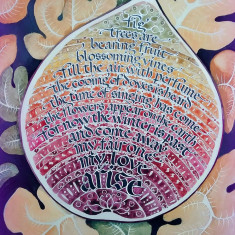 Fig
trees are
bearing fruit
blossoming vines
fill the air with perfume
the cooing of doves is heard
the time of singing has come
the flowers appear on the earth
for now the winter is past
and come away
my fair one
my love
arise